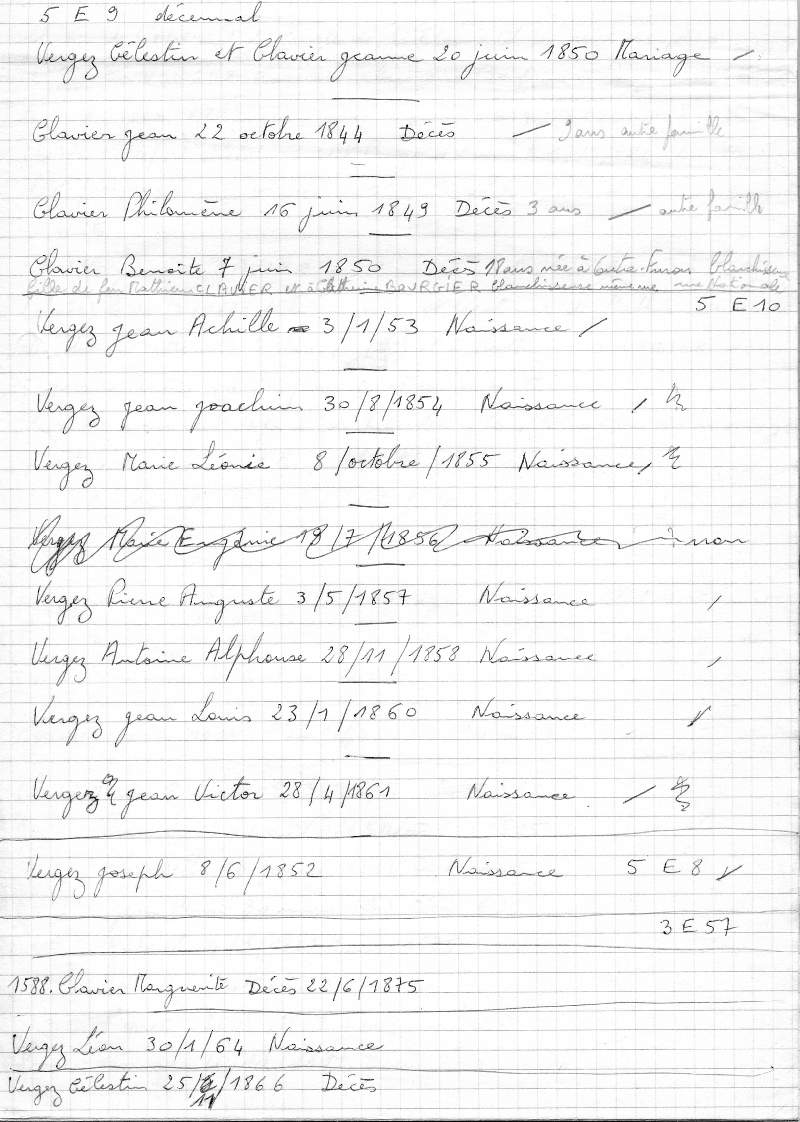 5 E 9 décennal
Vergez Célestin et Clavier jeanne 20 juin 1850 Mariage /
Clavier jean 22 octobre 1844 Décès / 9 ans autre famille
Clavier Philomène 16 juin 1849 Décès 3 ans / autre famille
Clavier Benoîte 7 juin 1850 Décès 18 ans née à Outre-Furan blanchisseuse
fille de feu Mathieu CLAVIER et à Catherine BOURGIER blanchisseuse même rue Nationale
5 E 10
Vergez jean Achille 3/1/53 Naissance /
Vergez jean joachim 30/8/1854 Naissance /
Vergez Marie Léonie 8/octobre/1855 Naissance /
Vergez Marie Eugénie 19/7/1856 Naissance ? non
Vergez Pierre Auguste 3/5/1857 Naissance /
Vergez Antoine Alphonse 28/11/1858 Naissance /
Vergez jean Louis 23/1/1860 Naissance /
Vergez jean Victor 28/4/1861 Naissance /
Vergez joseph 8/6/1852 Naissance 5 E 8 /
3 E 57
1588. Clavier Marguerite Décès 22/6/1875
Vergez Léon 30/1/64 Naissance
Vergez Célestin 25/11/1866 Décès